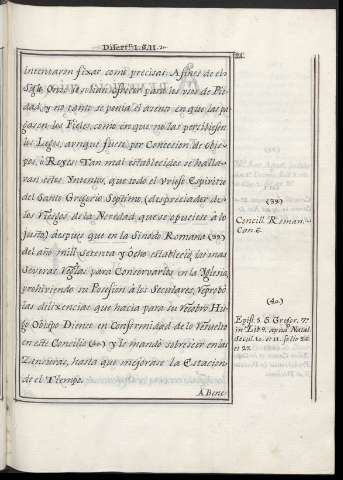 Disertn. I. §. II.
intentaron fixar como precisas. A fines de el
Siglo Onze ya solian ofrecer para los usos de Pie-
dad, y no tanto se ponia el acento en que las pa-
gasen los Fieles, como en que no las percibiesen
los Legos, aunque fuese por Concesion de Obis-
pos, ò Reyes. Tan mal establecidos se halla-
van estos Yntentos, que todo el brioso Espiritu
del Santo Gregorio Septimo, (despreciador de
los Riesgos de la Novedad, que se opusiese à lo
justo) despues que en la Sinodo Romano (39)
del año mill Setenta y Ocho estableciò las mas
Severas Reglas para Conservarlos en la Iglesia,
prohiviendo su Posesion à los Seculares, reprobò
las dilixencias que hacia para su recobro Hu-
go Obispo Diense en Conformidad de lo resuelto
en este Concilio (40) y le mandò sobreseer en las
Zensuras, hasta que mejorase la Estacion
de el Tiempo.
A Bene-
(39)
Concill. Roman.
Can. 6.
(40)
Epist. 5. S. Gregor. 7.
in Lib. 9.
Secul. 10. et 11. folio